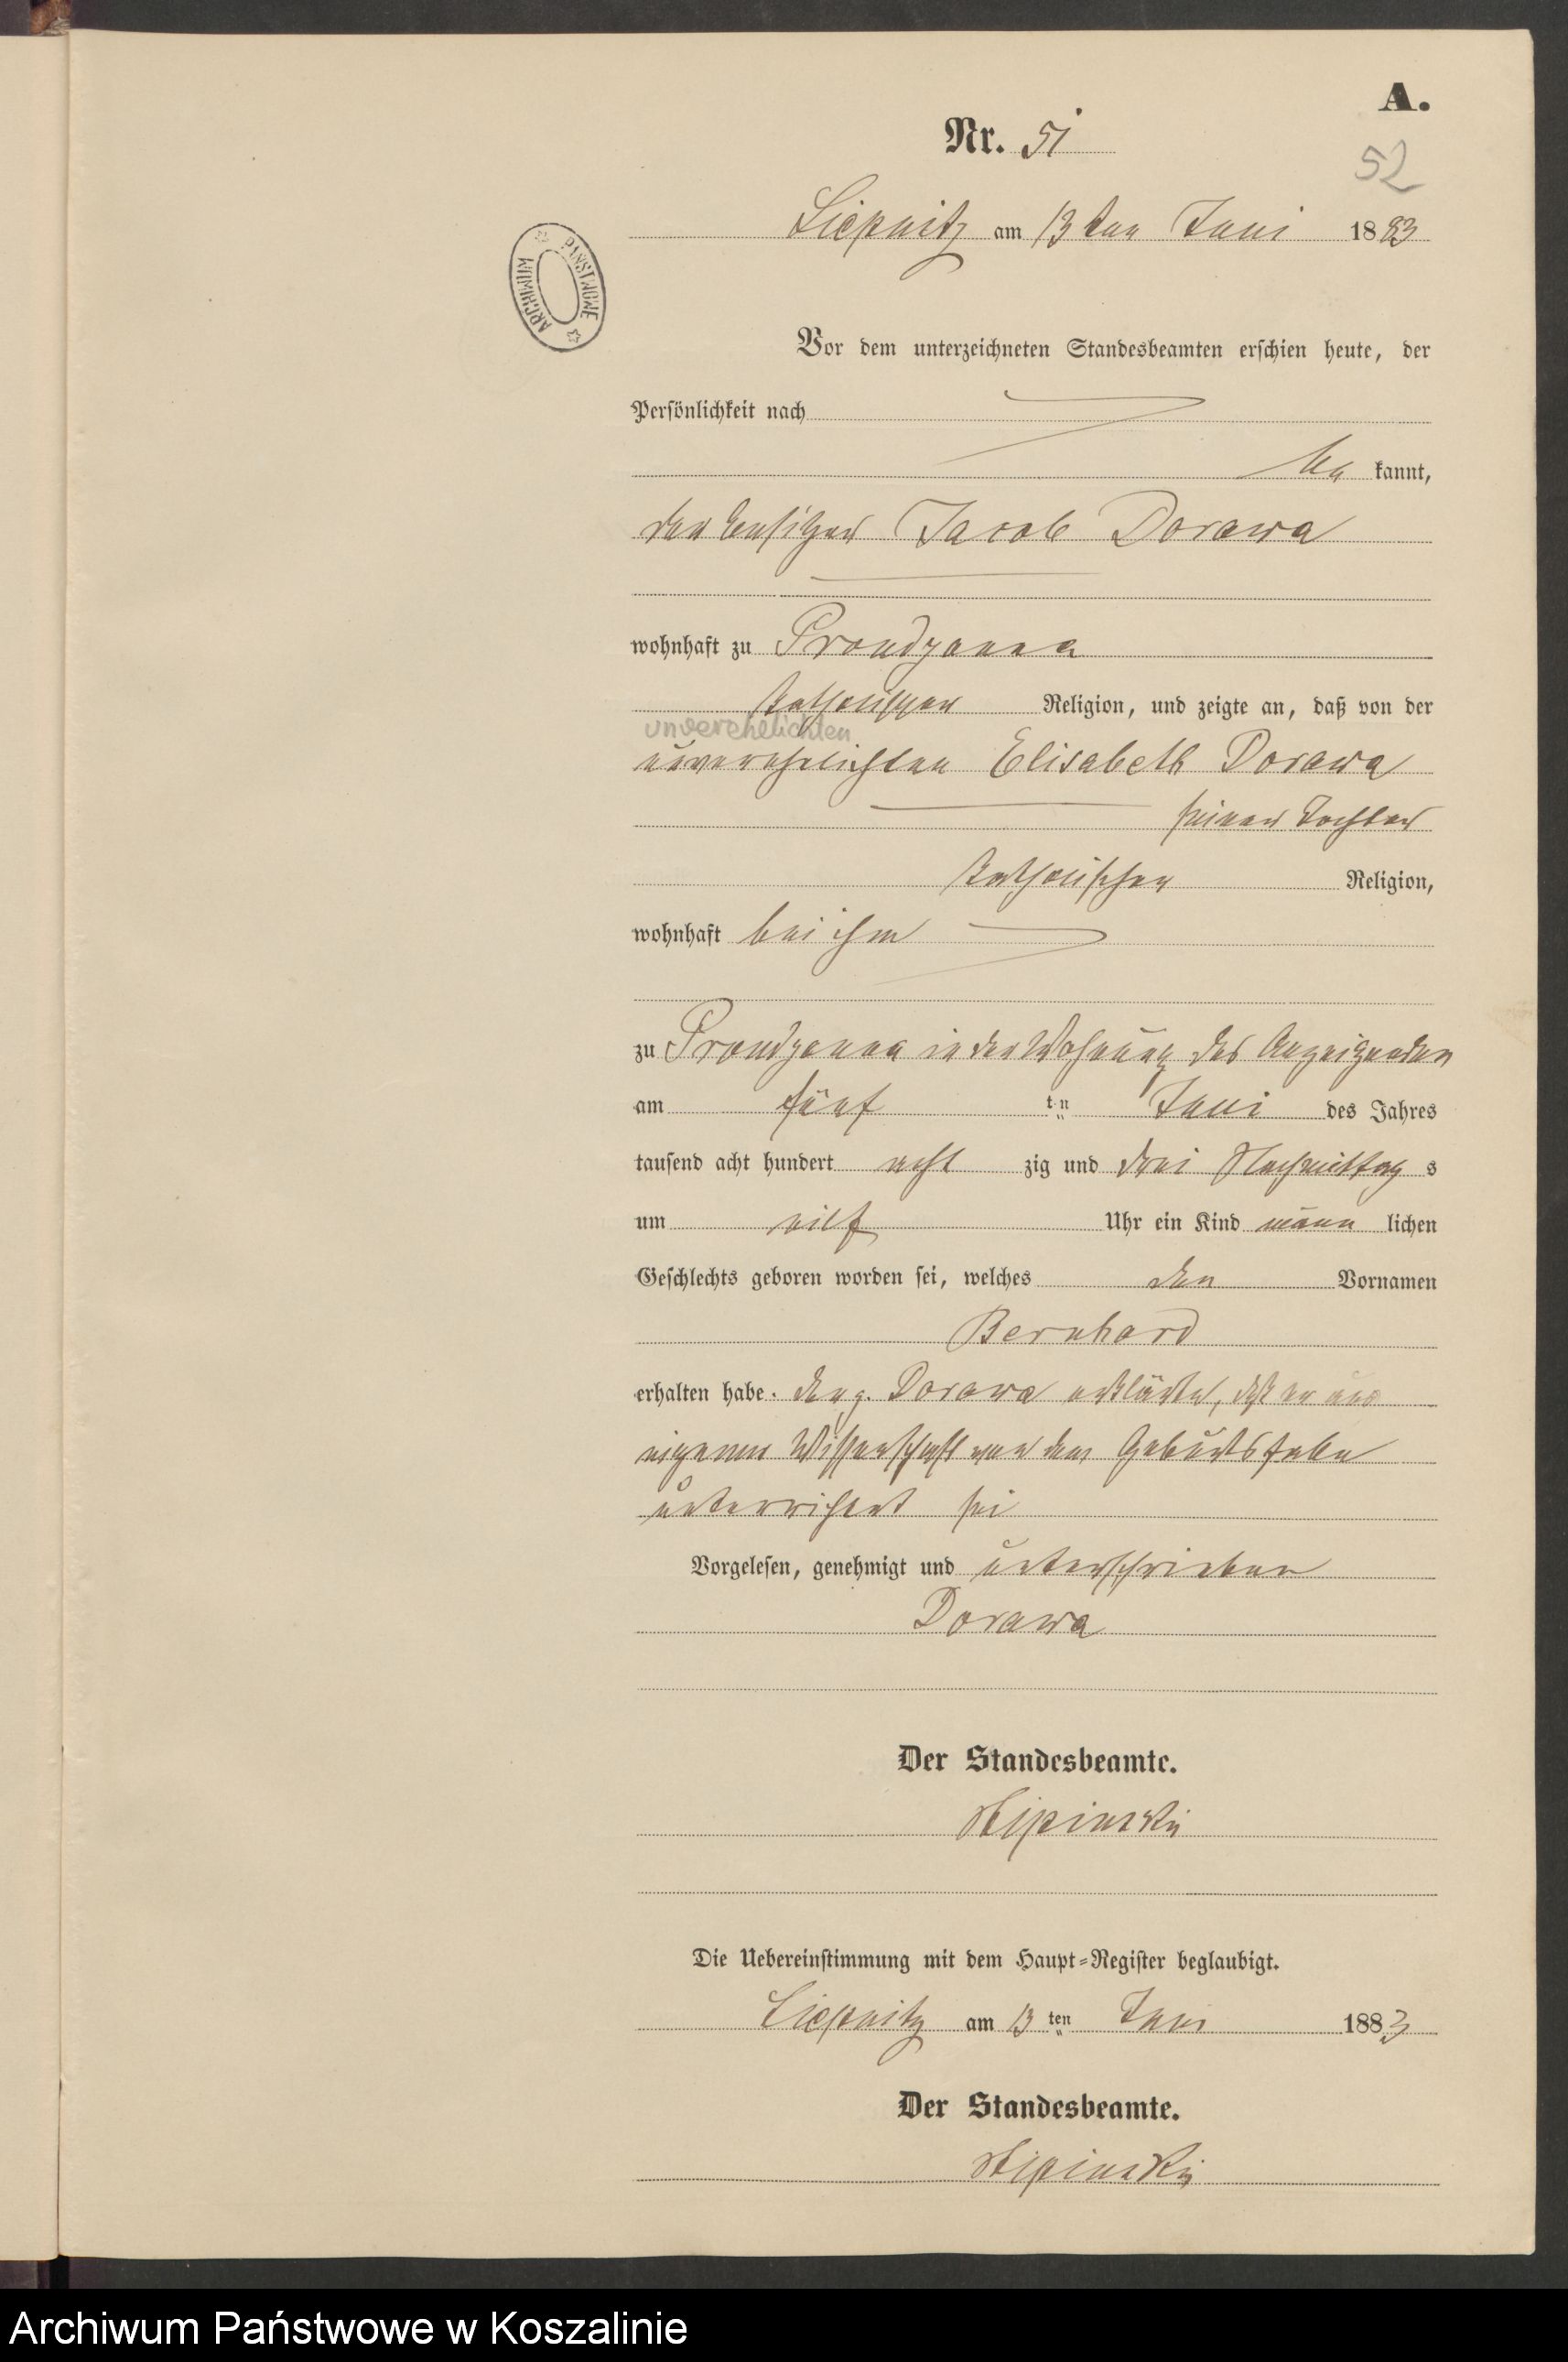 A.
Nr. 51
52
Liepnitz am 13ten Juni 1883
ARCHIWUM PAŃSTWOWE
Vor dem unterzeichneten Standesbeamten erschien heute, der
Persönlichkeit nach
be kannt,
der Besitzer Jacob Dorawa
wohnhaft zu Prondzonna
katholischer Religion, und zeigte an, daß von der
unverehelichten
unverehelichten Elisabeth Dorawa
seiner Tochter
katholischer Religion,
wohnhaft bei ihm
zu Prondzonna in der Wohnung des Anzeigenden
am fünf ten Juni des Jahres
tausend acht hundert acht zig und drei Nachmittag s
um elf Uhr ein Kind männ lichen
Geschlechts geboren worden sei, welches den Vornamen
Bernhard
erhalten habe. Der p. Dorawa erklärte, daß er aus
eigener Wissenschaft von dem Geburtsfalle
unterrichtet sei
Vorgelesen, genehmigt und unterschrieben
Dorawa
Der Standesbeamte.
Die Uebereinstimmung mit dem Haupt-Register beglaubigt.
Liepnitz am 13 ten Juni 1883
Der Standesbeamte.
Archiwum Państwowe w Koszalinie